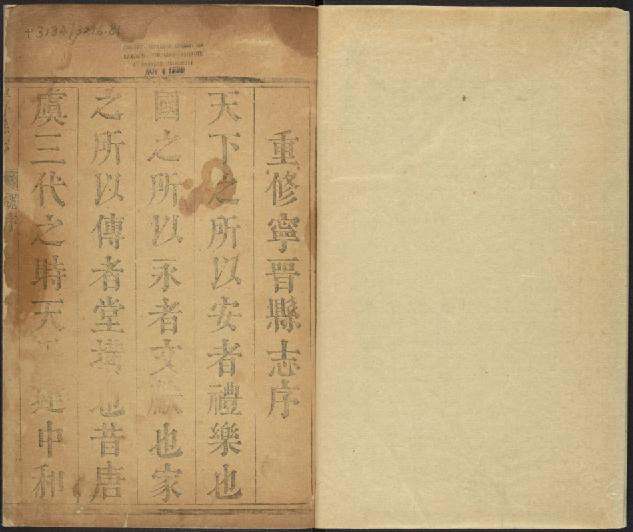 重修寧晉縣志序
天下之所以安者禮樂也
國之所以永者文獻也家
之所以傳者堂構也昔唐
虞三代之時天建中和